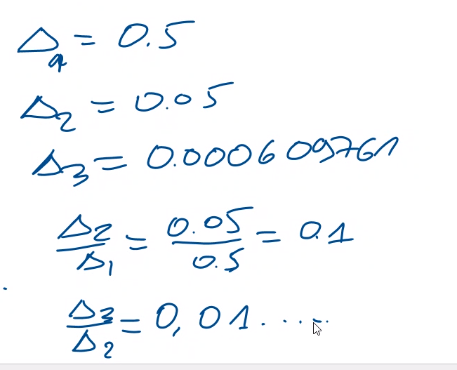 Δ1 = 0.5
Δ2 = 0.05
Δ3 = 0.000609761
Δ2/Δ1 = 0.05/0.5 = 0.1
Δ3/Δ2 = 0,01.....